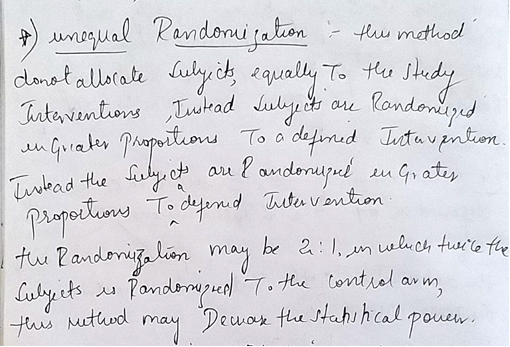 *) unequal Randomization :- this method
donot allocate Subjects, equally To the Study
Interventions, Instead Subjects are Randomized
in Grater Proportions To a defined Intervention.
Instead the Subjects are Randomized in Grater
Proportions To a defened Intervention.
the Randomization may be 2:1, in which twice the
Subjects is Randomized To the control arm,
this method may Decrease the Statistical power.